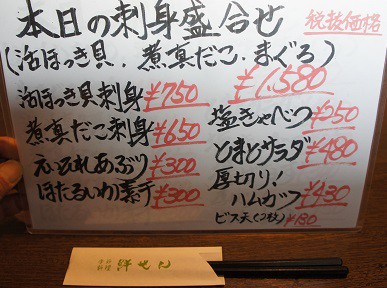 本日の刺身盛合せ
税抜価格
(活ほっき貝、煮真だこ、まぐろ)
¥1,580
活ほっき貝刺身 ¥750
煮真だこ刺身 ¥650
えいひれあぶり ¥300
ほたるいか素干 ¥300
塩きゃべつ ¥250
とまとサラダ ¥480
厚切り!
ハムカツ ¥430
ビス天(2枚) ¥180
鮮せん